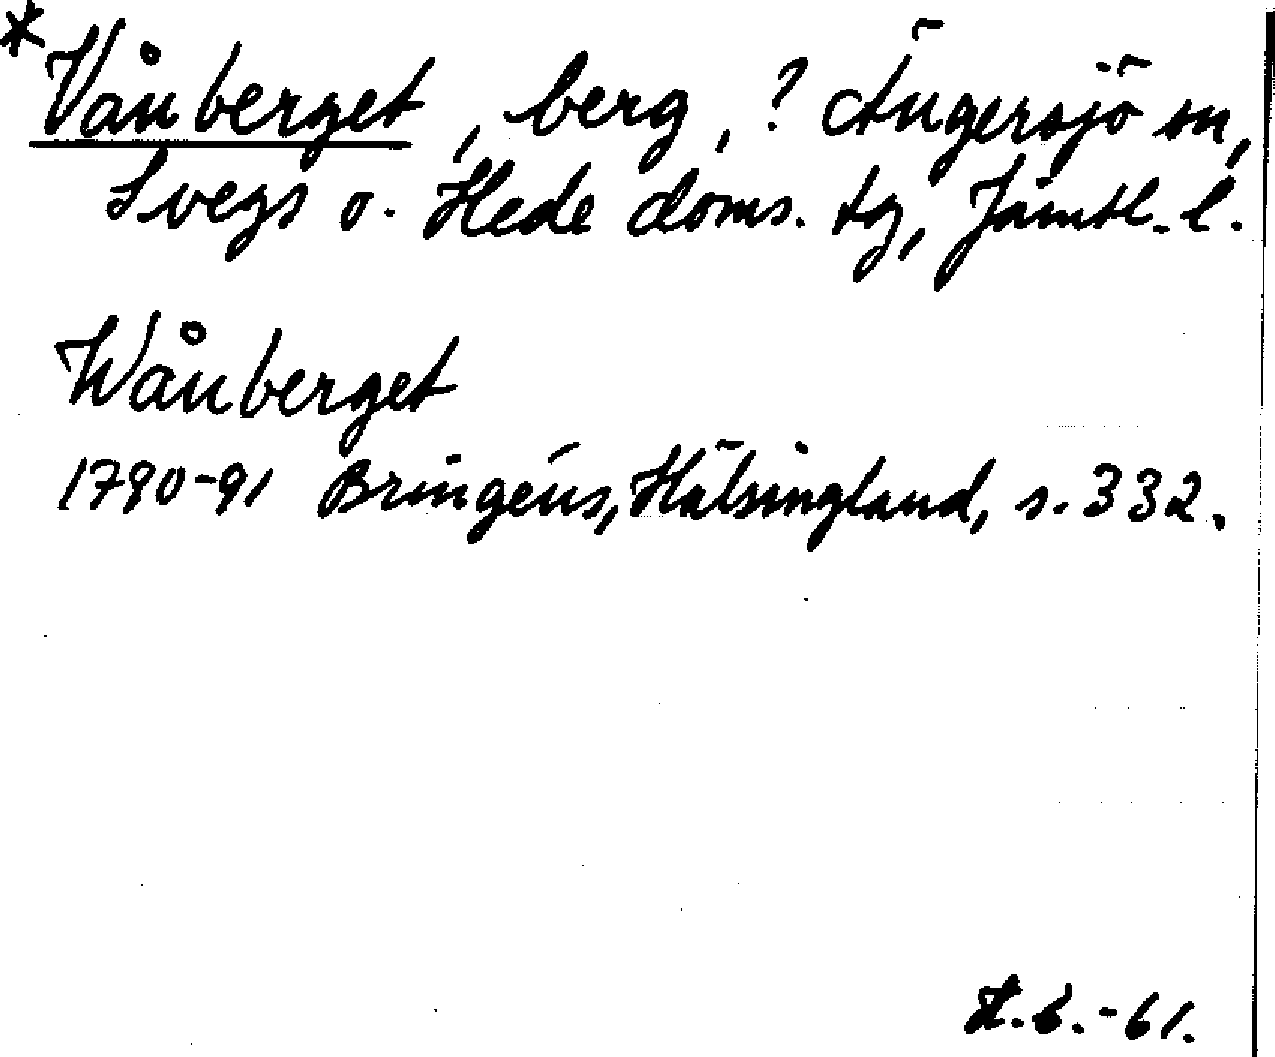 *Vånberget, berg, ? Ängersjö sn,
Svegs o. Hede doms. tg, Jämtl. l.
Wånberget
1790-91 Bringéus, Hälsingland, s. 332.
L.b.-61.